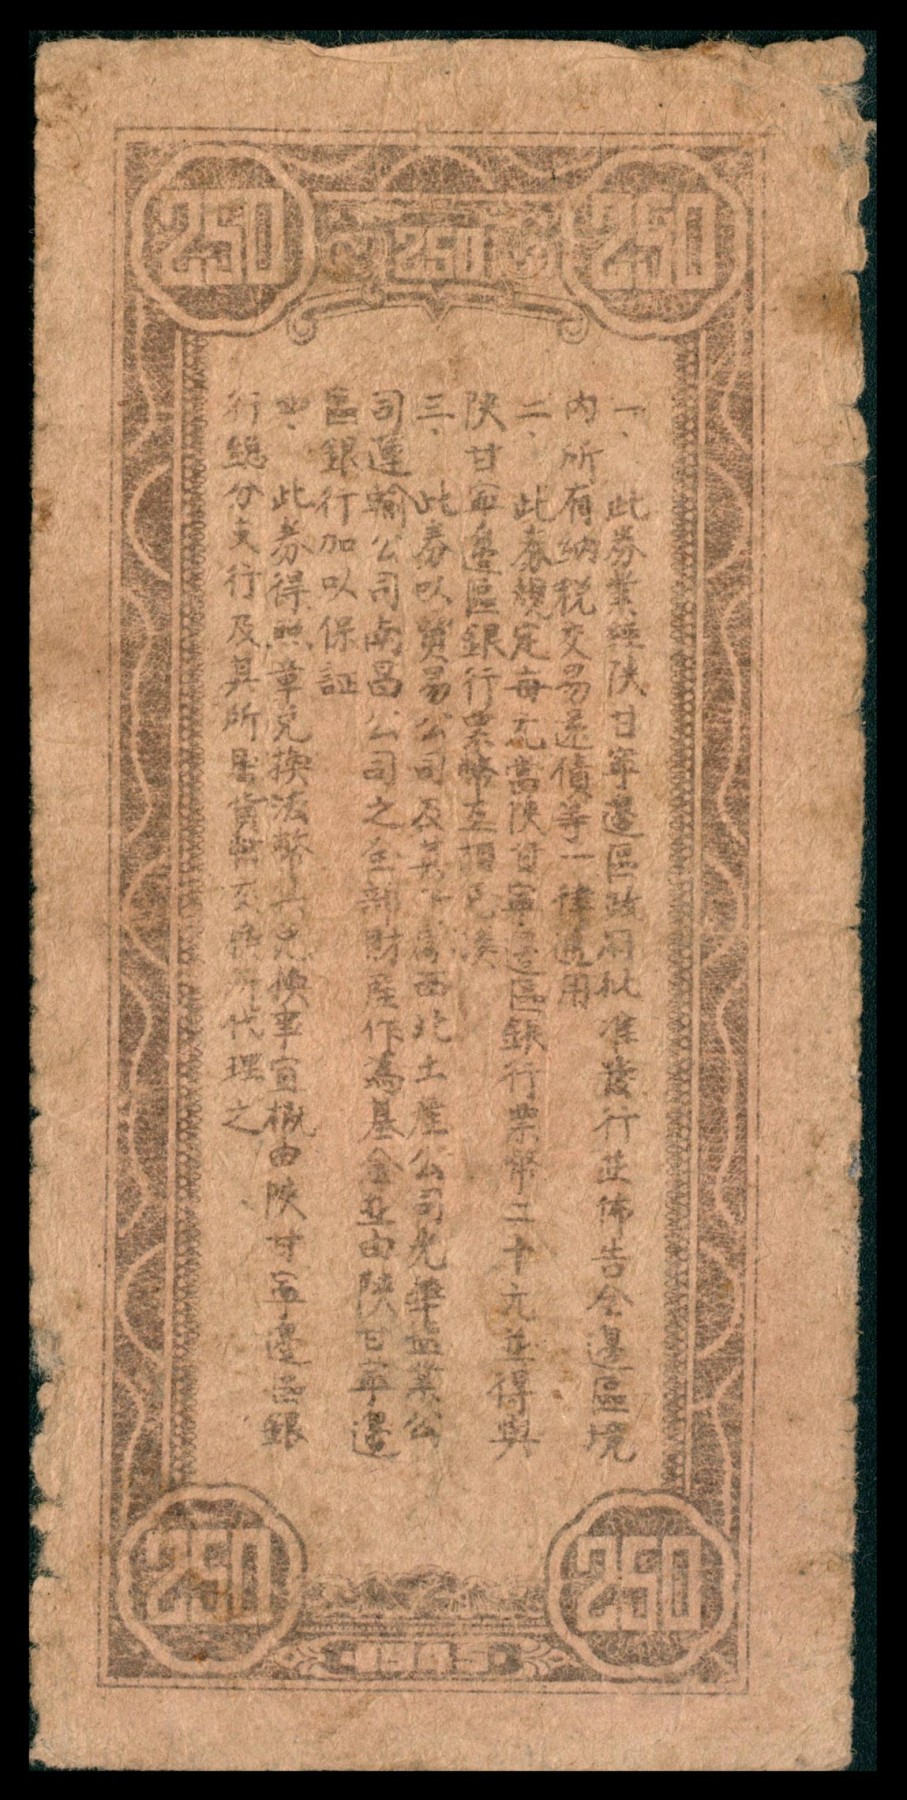 250
250
250
一、此券業經陝甘寧邊區政府批准發行並佈告全邊區境
內所有納稅交易還債等一律通用
二、此券規定每元當陝甘寧邊區銀行票幣二十元並得與
陝甘寧邊區銀行票幣互相兌換
三、此券以貿易公司及其下屬西北土產公司光華鹽業公
司運輸公司南昌公司之全部財產作為基金並由陝甘寧邊
區銀行加以保証
四、此券得照章兌換法幣其兌換事宜概由陝甘寧邊區銀
行總分支行及其所屬貨幣交換所代理之
250
250
1945